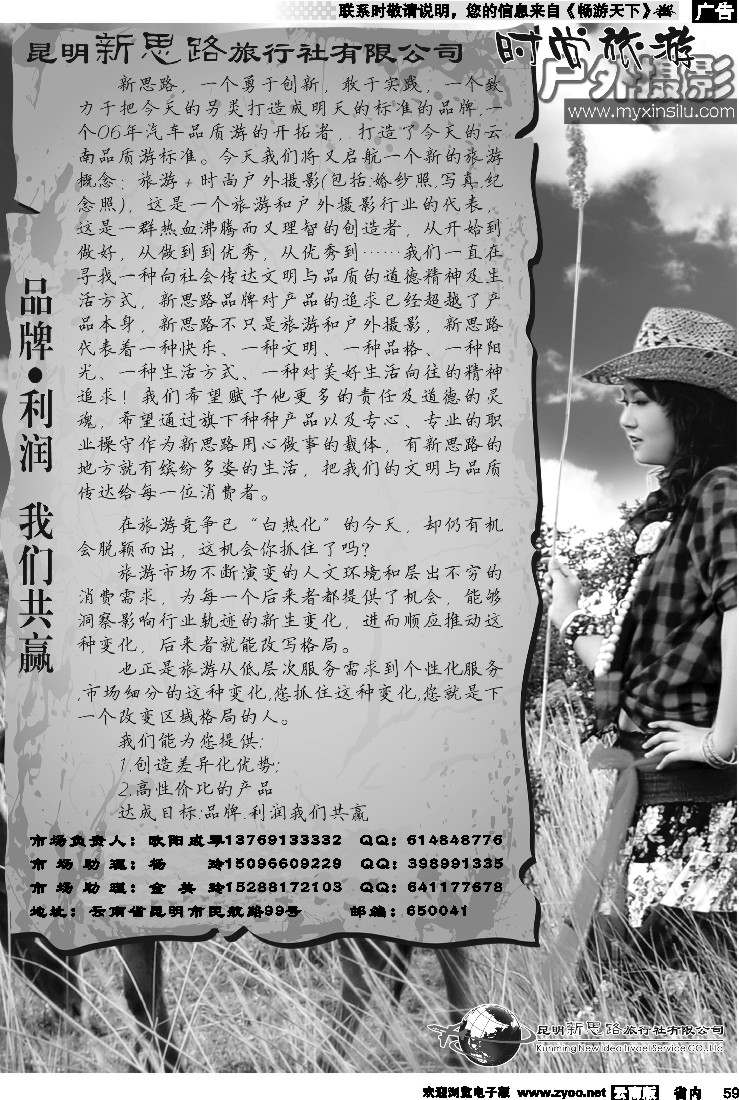 联系时敬请说明，您的信息来自《畅游天下》
广告
昆明新思路旅行社有限公司
时尚旅游
户外摄影
www.myxinsilu.com
新思路，一个勇于创新，敢于实践，一个致
力于把今天的另类打造成明天的标准的品牌,一
个06年汽车品质游的开拓者，打造了今天的云
南品质游标准。今天我们将又启航一个新的旅游
概念：旅游+时尚户外摄影(包括:婚纱照,写真,纪
念照)，这是一个旅游和户外摄影行业的代表，
这是一群热血沸腾而又理智的创造者，从开始到
做好，从做到到优秀，从优秀到……我们一直在
寻找一种向社会传达文明与品质的道德精神及生
活方式，新思路品牌对产品的追求已经超越了产
品本身，新思路不只是旅游和户外摄影，新思路
代表着一种快乐、一种文明、一种品格、一种阳
光、一种生活方式、一种对美好生活向往的精神
追求！我们希望赋予他更多的责任及道德的灵
魂，希望通过旗下种种产品以及专心、专业的职
业操守作为新思路用心做事的载体，有新思路的
地方就有缤纷多姿的生活，把我们的文明与品质
传达给每一位消费者。
在旅游竞争已“白热化”的今天，却仍有机
会脱颖而出，这机会你抓住了吗?
旅游市场不断演变的人文环境和层出不穷的
消费需求，为每一个后来者都提供了机会，能够
洞察影响行业轨迹的新生变化，进而顺应推动这
种变化，后来者就能改写格局。
也正是旅游从低层次服务需求到个性化服务
,市场细分的这种变化,您抓住这种变化,您就是下
一个改变区域格局的人。
我们能为您提供:
1.创造差异化优势;
2.高性价比的产品
达成目标:品牌.利润我们共赢
品牌●利润 我们共赢
市场负责人：欧阳成琴13769133332 QQ：614848776
市场助理：杨 玲15096609229 QQ：398991335
市场助理：金美玲15288172103 QQ：641177678
地址：云南省昆明市民航路99号 邮编：650041
昆明新思路旅行社有限公司
Kunming New Idea Travel Service CO.,Ltd
欢迎浏览电子版 www.zyoo.net 云南版 省内 59